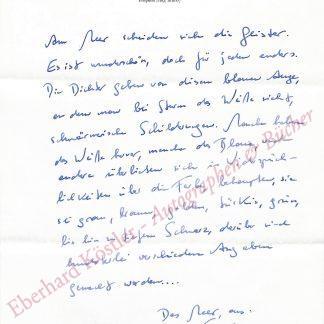 Am Meer scheiden sich die Geister.
Es ist wunderschön, doch für jeden anders.
Die Dichter geben von diesem blauen Auge,
an dem man bei Sturm das Weiße sieht,
schwärmerische Schilderungen. Manche heben
das Weiße hervor, manche das Blaue, und
andere überbieten sich in
über die Farbe, behaupten, sie
sei grau, braun, golden, türkis, grün,
bis hin zu tiefem Schwarz, darüber sind
verschiedene Angaben
gemacht worden....
Das Meer, aus:
Eberhard Köstler - Autographen & Bücher